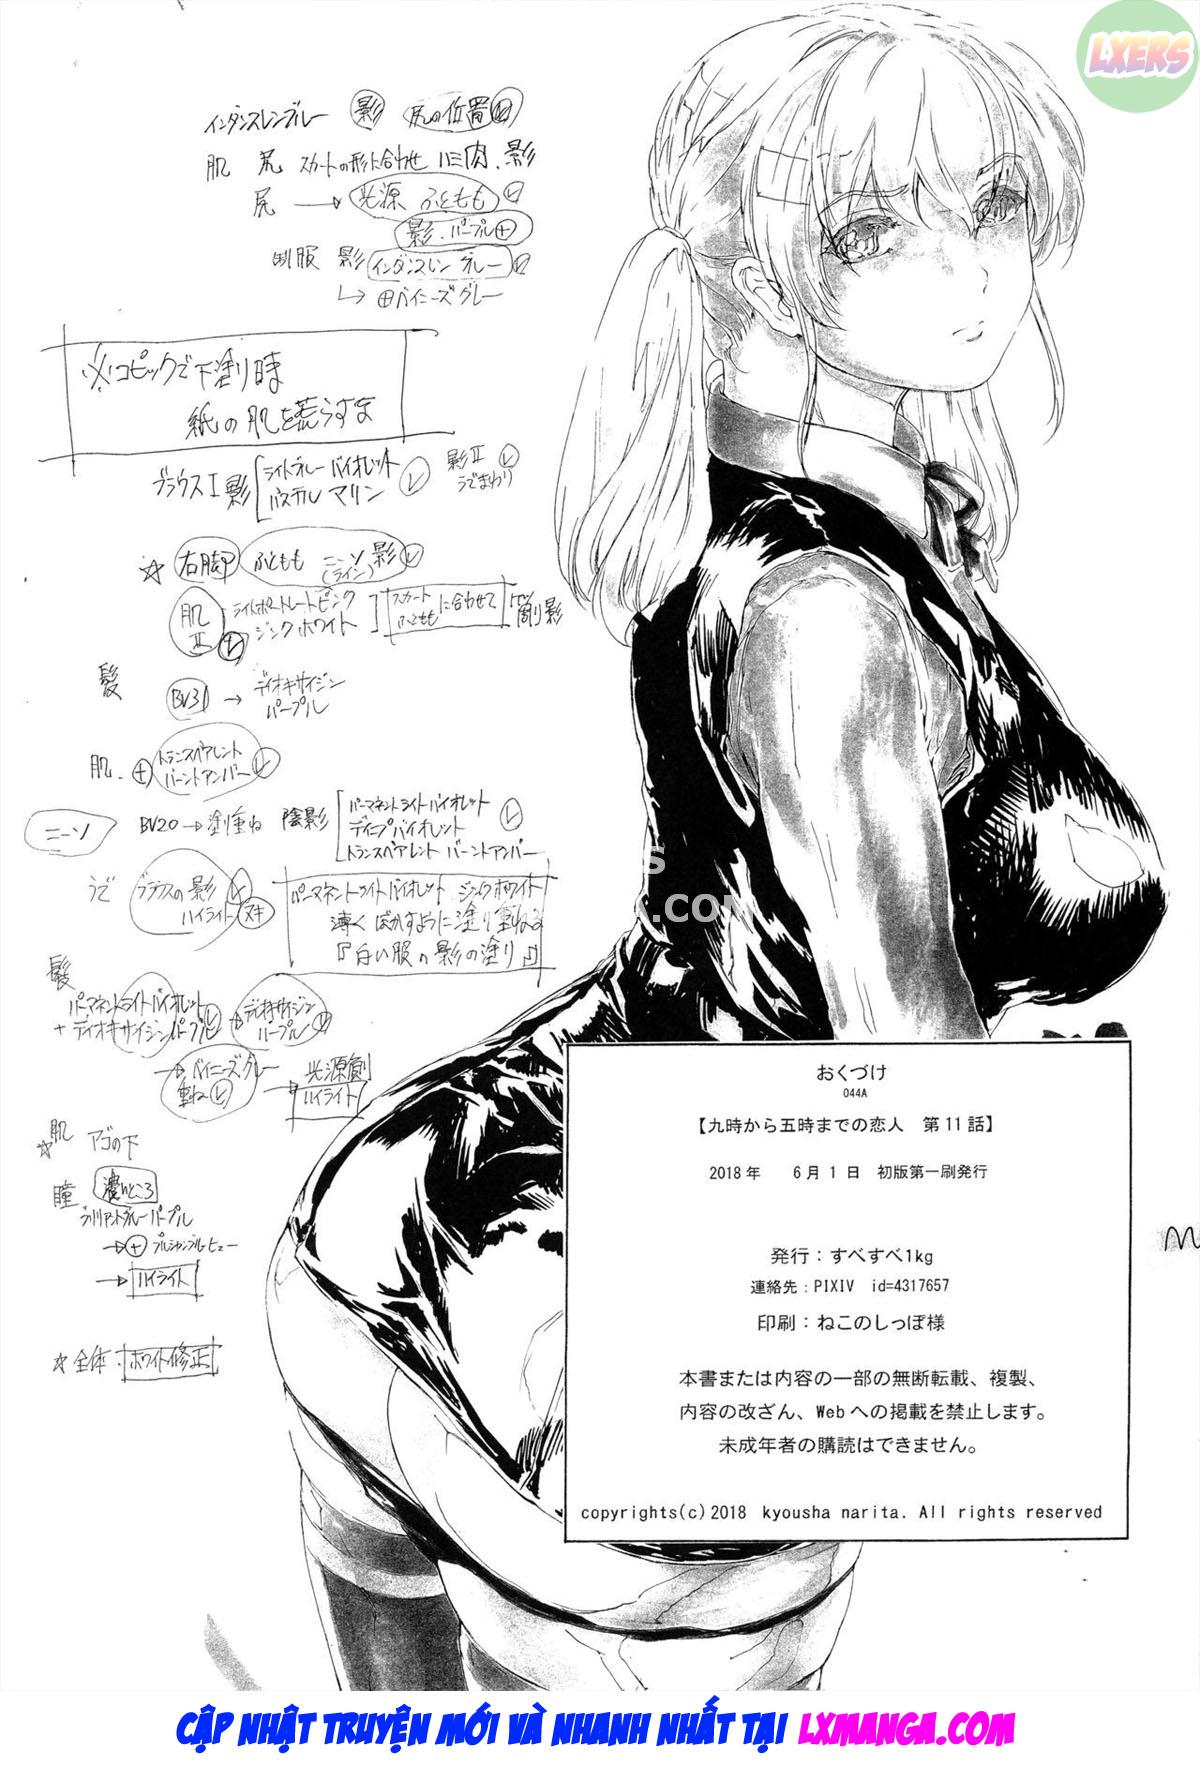 LXERS
インダンスレンブルー 影 尻の位置
肌 尻 スカートの形に合わせ ハミ肉、影
尻 → 光源 ふともも
影・パープル
制服 影 インダンスレン ブルー
ペイニーズグレー
※コピックで下塗り時
紙の肌を荒らすな
ブラウスⅠ影 ライトブルー バイオレット
パステル マリン
影Ⅱ
うでまわり
☆ 右脚 ふともも ニーソ 影
(ライン)
肌Ⅱ
ライトポートレートピンク
ジンクホワイト
スカート
ふともも に合わせて
影
髪
BV31 → ディオキサイジン
パープル
肌・ + トランスペアレント
バーントアンバー
ニーソ BV20 → 塗り重ね 陰影
パーマネントライトバイオレット
ディープバイオレット
トランスペアレント バーントアンバー
うで ブラウスの影
ハイライト
パーマネントライトバイオレット ジンクホワイト
薄く ぼかすように塗り重ねる
『白い服の影の塗り』
髪
パーマネントライトバイオレット
+ ディオキサイジンパープル
ディオキサイジン
パープル
→ ペイニーズグレー
重ね
光源側
→ ハイライト
☆ 肌 アゴの下
瞳 濃いところ
ブリリアントブルーパープル
→ + プルシャンブルーヒュー
→ ハイライト
☆ 全体・ホワイト修正
S
.COM
おくづけ
044A
【九時から五時までの恋人 第11話】
2018年 6月1日 初版第一刷発行
発行：すべすべ1kg
連絡先：PIXIV id=4317657
印刷：ねこのしっぽ様
本書または内容の一部の無断転載、複製、
内容の改ざん、Webへの掲載を禁止します。
未成年者の購読はできません。
copyrights(c)2018 kyousha narita. All rights reserved
CẬP NHẬT TRUYỆN MỚI VÀ NHANH NHẤT TẠI LXMANGA.COM